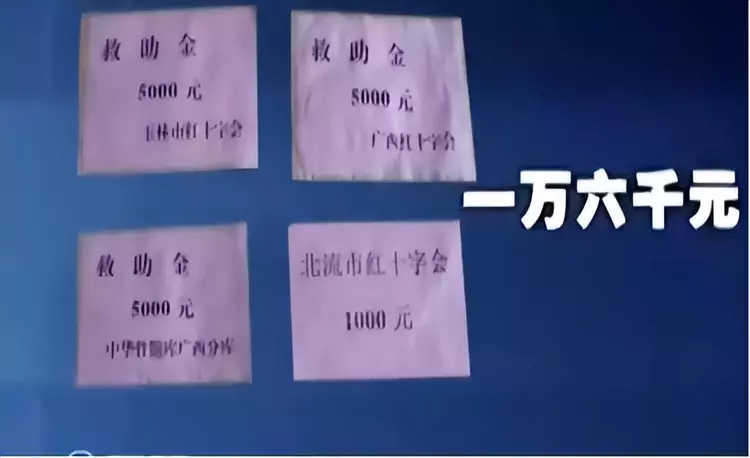 救助金
5000 元
玉林市红十字会
救助金
5000 元
广西红十字会
一万六千元
救助金
5000 元
中华骨髓库广西分库
北流市红十字会
1000 元